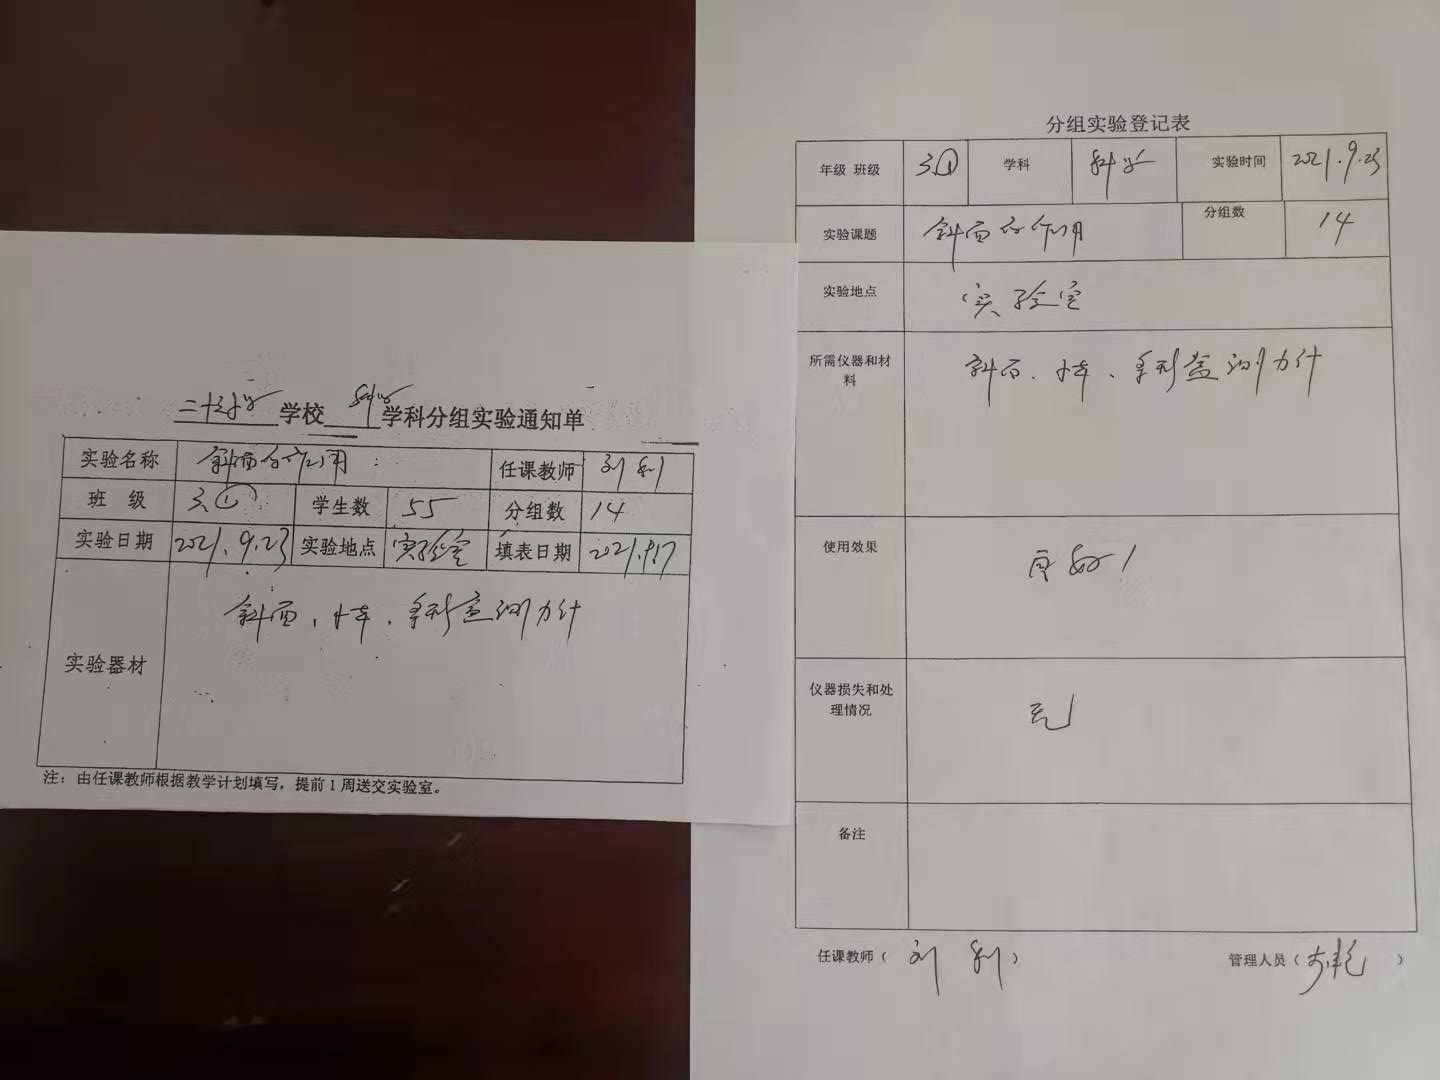 学校 科学 学科分组实验通知单
实验名称 斜面的作用 任课教师 刘利
班 级 三① 学生数 55 分组数 14
实验日期 2021.9.23 实验地点 实验室 填表日期 2021.9.17
实验器材 斜面、木块、条形盒测力计
注：由任课教师根据教学计划填写，提前1周送交实验室。
分组实验登记表
年级 班级 三① 学科 科学 实验时间 2021.9.23
实验课题 斜面的作用 分组数 14
实验地点 实验室
所需仪器和材料 斜面、木块、条形盒测力计
使用效果 良好！
仪器损失和处理情况 无
备注
任课教师（刘 利） 管理人员（ ）